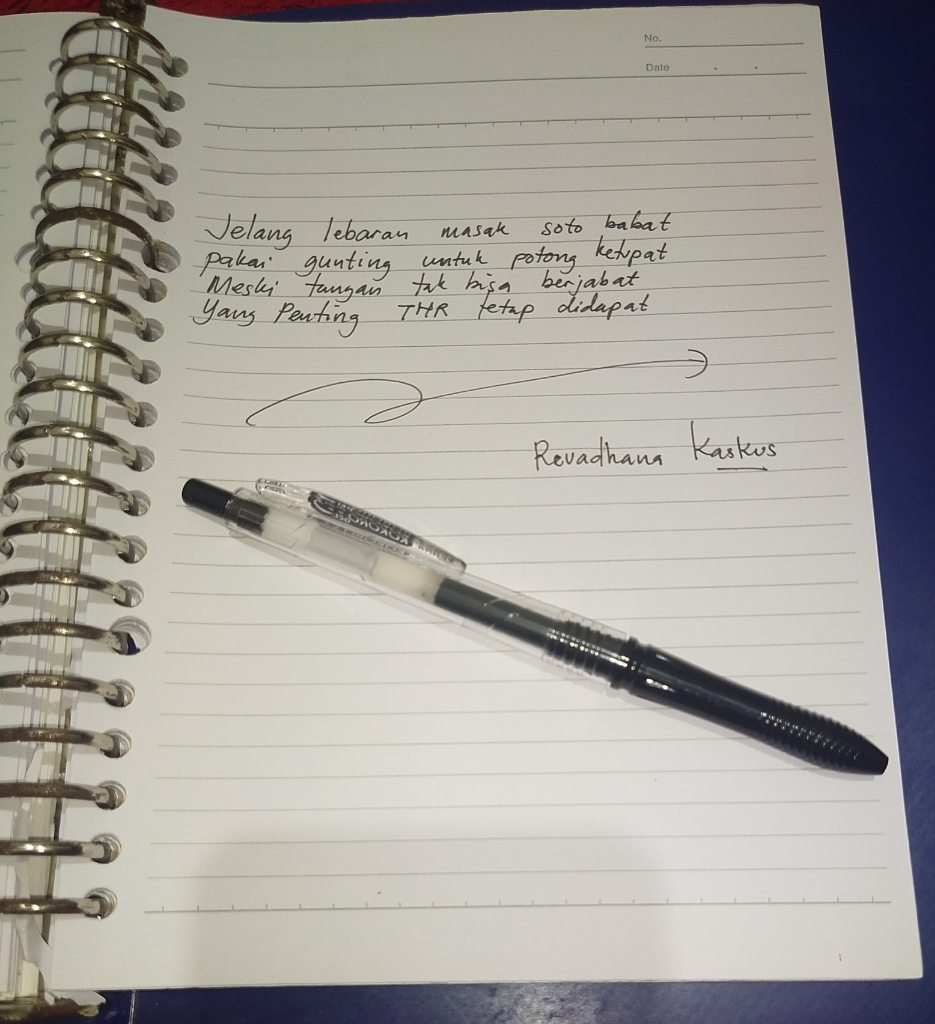 No.
Date
Jelang lebaran masak soto babat
pakai gunting untuk potong ketupat
Meski tangan tak bisa berjabat
Yang Penting THR tetap didapat
Revadhana Kaskus
KOKORO